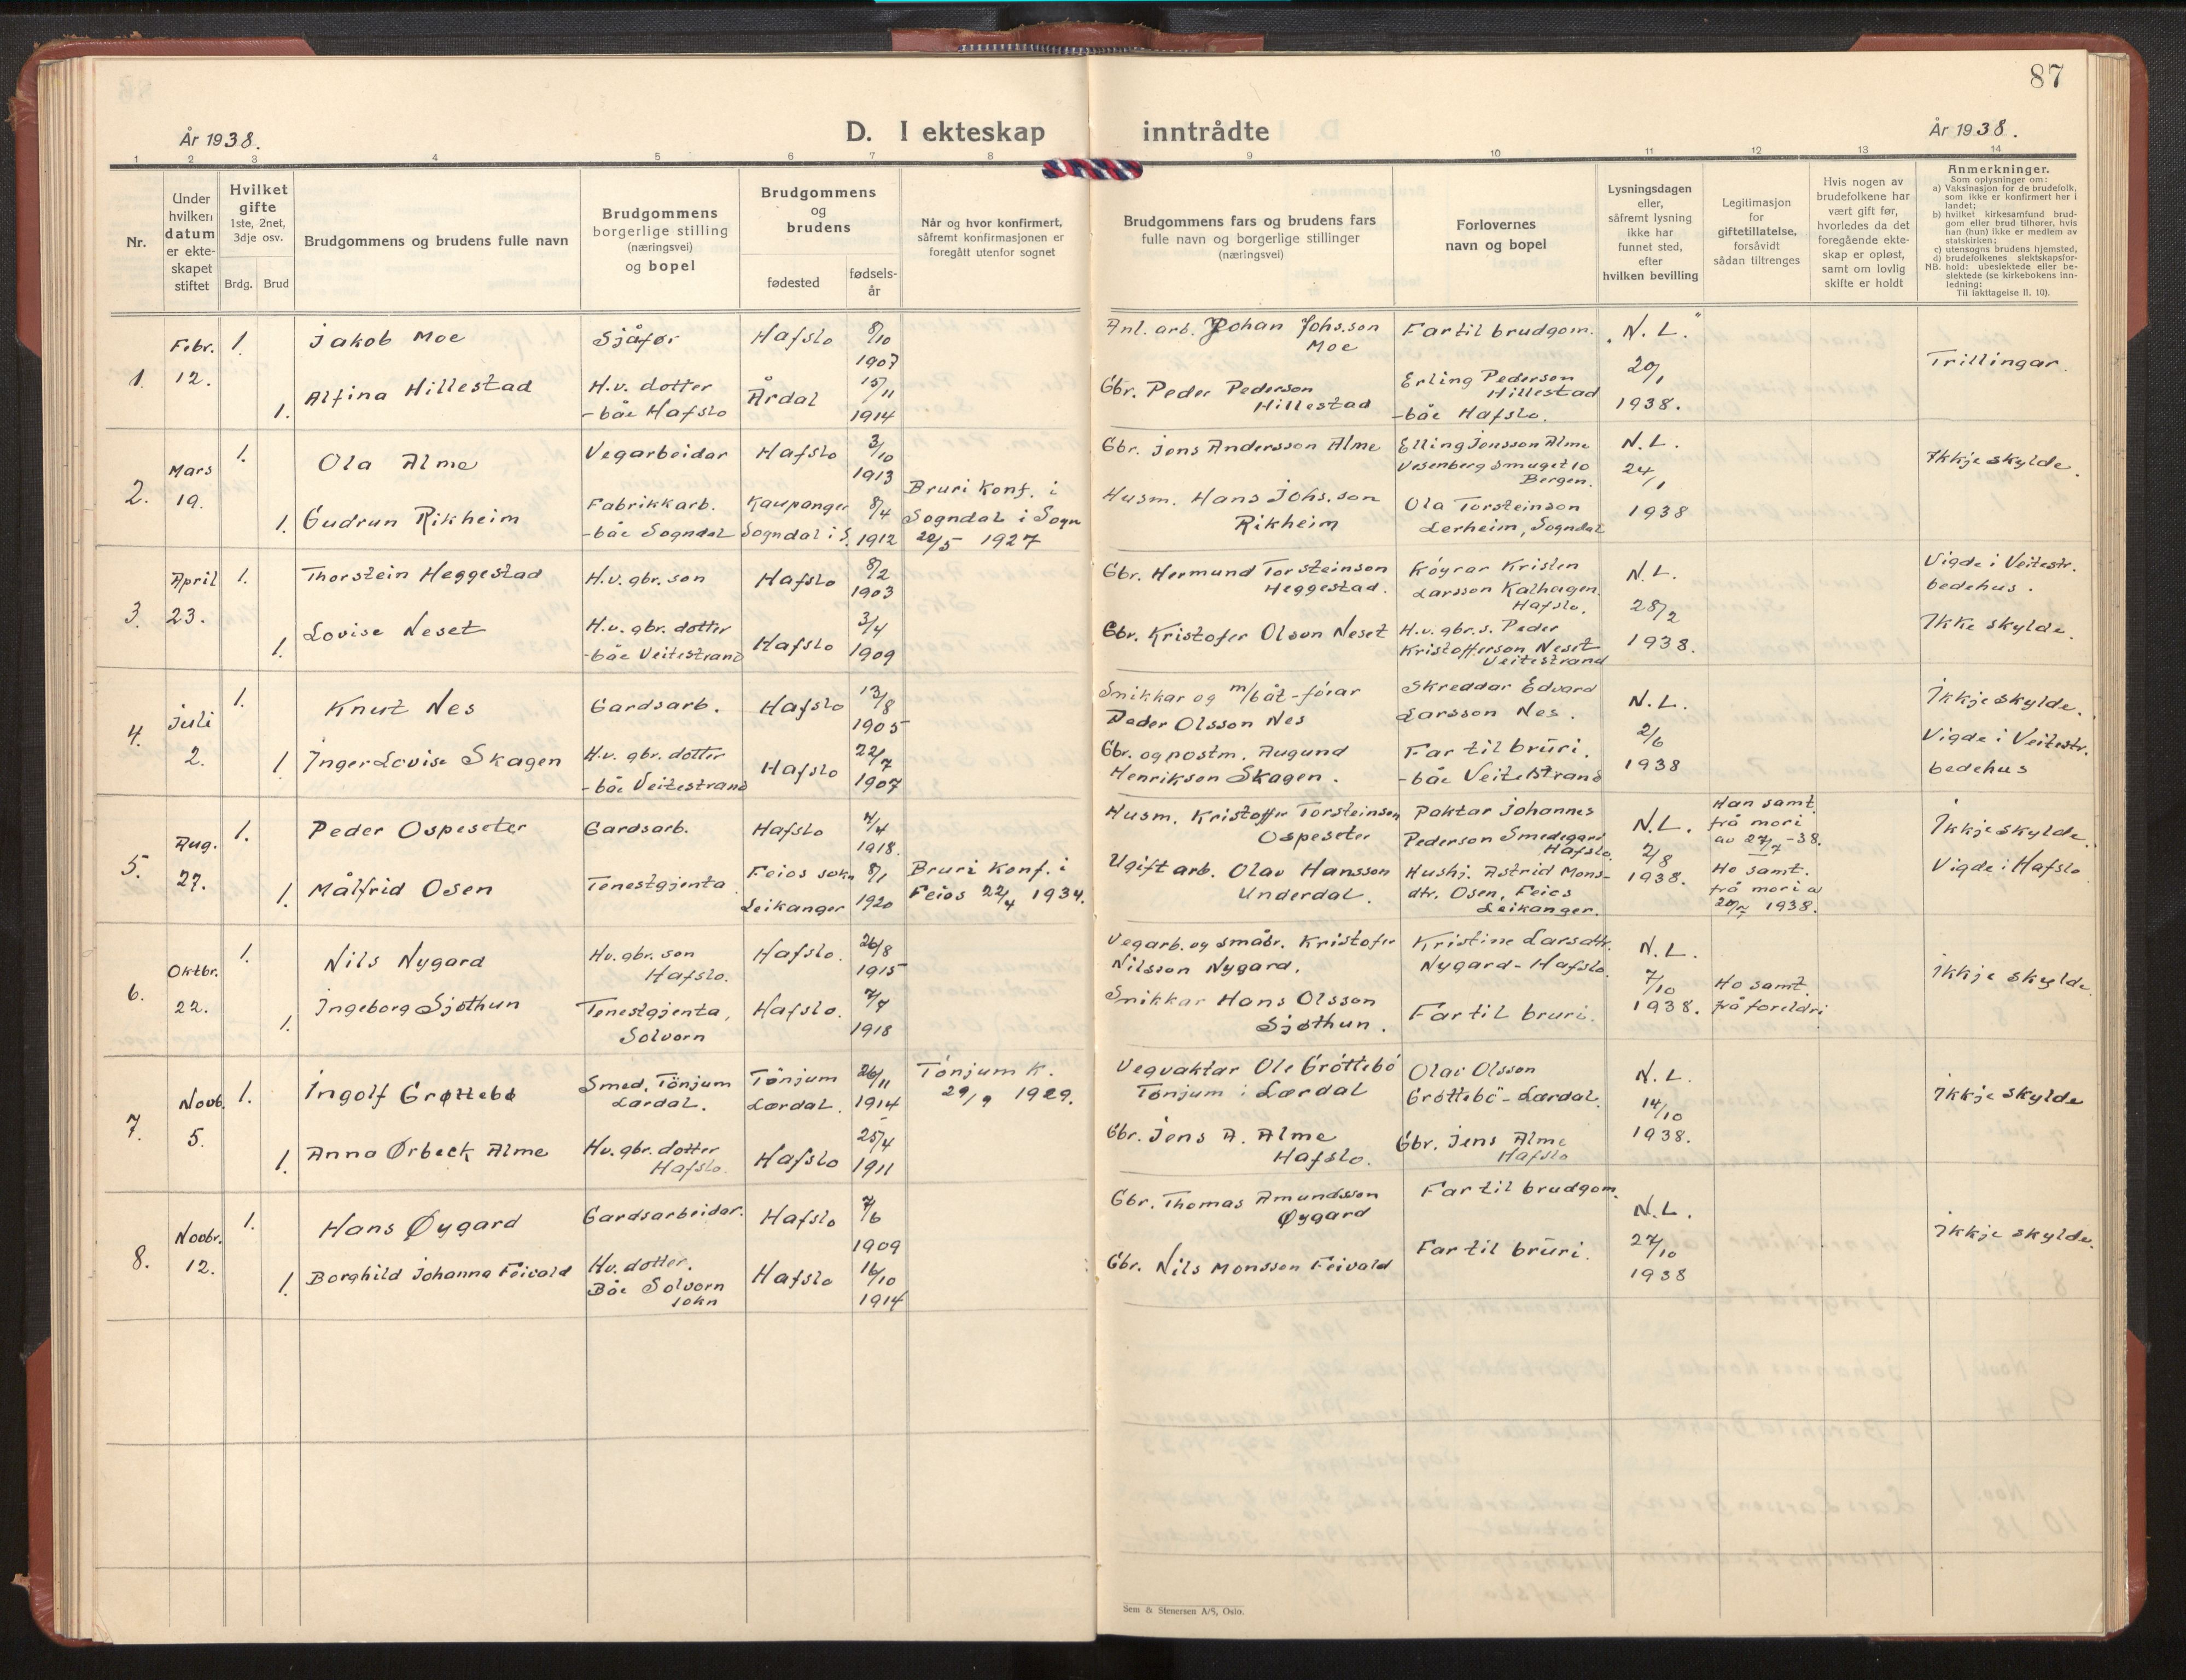 87
År 1938.
D. I ekteskap inntrådte
År 1938.
1 2 3 4 5 6 7 8 9 10 11 12 13 14
Nr.
Under hvilken datum er ekteskapet stiftet
Hvilket gifte
1ste, 2net, 3dje osv.
Brdg. Brud
Brudgommens og brudens fulle navn
Brudgommens borgerlige stilling (næringsvei) og bopel
Brudgommens og brudens
fødested
fødselsår
Når og hvor konfirmert, såfremt konfirmasjonen er foregått utenfor sognet
Brudgommens fars og brudens fars fulle navn og borgerlige stillinger (næringsvei)
Forlovernes navn og bopel
Lysningsdagen eller, såfremt lysning ikke har funnet sted, efter hvilken bevilling
Legitimasjon for giftetillatelse, forsåvidt sådan tiltrenges
Hvis nogen av brudefolkene har vært gift før, hvorledes da det foregående ekteskap er opløst, samt om lovlig skifte er holdt
Anmerkninger.
Som oplysninger om:
a) Vaksinasjon for de brudefolk, som ikke er konfirmert her i landet;
b) hvilket kirkesamfund brudgom eller brud tilhører, hvis han (hun) ikke er medlem av statskirken;
c) utensogns brudens hjemsted,
d) brudefolkenes slektskapsforhold: ubeslektede eller beslektede (se kirkebokens innledning:
NB.
Til iakttagelse II. 10).
1. Febr. 12.
1. Jakob Moe
Sjåfør
Hafslo
8/10 1907
Anl. arb. Johan Johs.son Moe
Far til brudgom.
"N. L."
20/1
1938.
Trillingar.
1. Alfina Hillestad
H.v. dotter
- båe Hafslo
Årdal
15/11 1914
Gbr. Peder Pederson Hillestad
Erling Pederson Hillestad
- båe Hafslo.
2. Mars 19.
1. Ola Alme
Vegarbeidar
Hafslo
3/10 1913
Gbr. Jens Andersson Alme
Elling Jensson Alme
Vesenberg Smuget 10
Bergen.
N. L.
24/1
1938
Ikkje skylde.
1. Gudrun Rikheim
Fabrikkarb.
- båe Sogndal
Kaupanger
Sogndal i S.
8/4 1912
Bruri konf. i
Sogndal i Sogn
22/5 1927
Husm. Hans Johs.son
Rikheim
Ola Torsteinson
Lerheim, Sogndal
3. April 23.
1. Thorstein Heggestad
H.v. gbr. son
Hafslo
8/2 1903
Gbr. Hermund Torsteinson
Heggestad.
Köyrar Kristen
Larsson Kalhagen.
Hafslo.
N. L.
28/2
1938.
Vigde i Veitestr.
bedehus.
Ikke skylde.
1. Lovise Neset
H.v. gbr. dotter
- båe Veitestrand
Hafslo
3/4 1909
Gbr. Kristofer Olson Neset
H.v. gbr. s. Peder
Kristofferson Neset
Veitestrand
4. Juli 2.
1. Knut Nes
Gardsarb.
Hafslo
13/8 1905
Snikkar og m/båt-förar
Peder Olsson Nes
Skreddar Edvard
Larsson Nes.
N. L.
2/6
1938
Ikkje skylde.
Vigde i Veitestr.
bedehus
1 Inger Lovise Skagen
H.v. gbr. dotter
- båe Veitestrand
Hafslo
22/7 1907
Gbr. og postm. Augund
Henrikson Skagen.
Far til brüri.
- båe Veitestrand
5. Aug. 27.
1. Peder Ospeseter
Gardsarb.
Hafslo
4/4 1918.
Husm. Kristoffer Torsteinson
Ospeseter
Paktar Johannes
Pederson Smedegard
Hafslo.
N.L.
2/8
1938.
Han samt.
frå mori
av 27/7-38.
Ikkje skylde.
Vigde i Hafslo
1. Målfrid Osen
Tenestgjenta
Feios sokn
Leikanger
8/1 1920
Bruri konf. i
Feios 22/4 1934.
Ugift arb. Olav Hansson
Underdal.
Hushj. Astrid Mons-
dtr. Osen, Feios
Leikanger.
Ho samt.
frå mori a
20/7 1938.
6. Oktbr. 22.
1. Nils Nygard
Hv. gbr. son
Hafslo.
Hafslo.
26/8 1915
Vegarb. og småbr. Kristofer
Nilsson Nygard.
Kristine Larsdtr.
Nygard - Hafslo.
N. L.
7/10
1938.
Ho samt.
frå foreldri
Ikkje skylde.
1. Ingeborg Sjøthun
Tenestgjenta,
Solvorn
Hafslo.
7/7 1918
Snikkar Hans Olsson
Sjøthun.
Far til bruri.
7. Novb. 5.
1. Ingolf Grøttebø
Smed, Tönjum
Lærdal.
Tönjum
Lærdal.
26/11 1914
Tönjum K.
29/9 1929.
Vegvaktar Ole Gröttebö
Tönjum i Lærdal
Olav Olsson
Gröttebö - Lærdal.
N. L.
14/10
1938.
Ikkje skylde
1. Anna Ørbeck Alme
Hv. gbr. dotter
Hafslo.
Hafslo
25/4 1911
Gbr. Jens A. Alme
Hafslo.
Gbr. Jens Alme
Hafslo
8. Novbr. 12.
1. Hans Øygard
Gardsarbeidar.
Hafslo
7/6 1909
Gbr. Thomas Amundsson
Øygard
Far til brudgom.
N.L.
27/10
1938
Ikkje skylde.
1. Borghild Johanna Feivald
Hv. dotter.
Båe Solvorn
sokn
Hafslo
16/10 1914
Gbr. Nils Monsson Feivald
Far til brüri.
Sem & Stenersen A/S, Oslo.